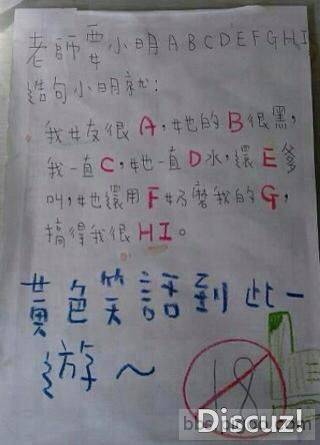 老師要小明ABCDEFGHI
造句小明就:
我女友很A,她的B很黑,
我一直C,她一直D水,還E爹
叫,她還用F奶磨我的G,
搞得我很HI。
黃色笑話到此一
游~
18
Discuz!